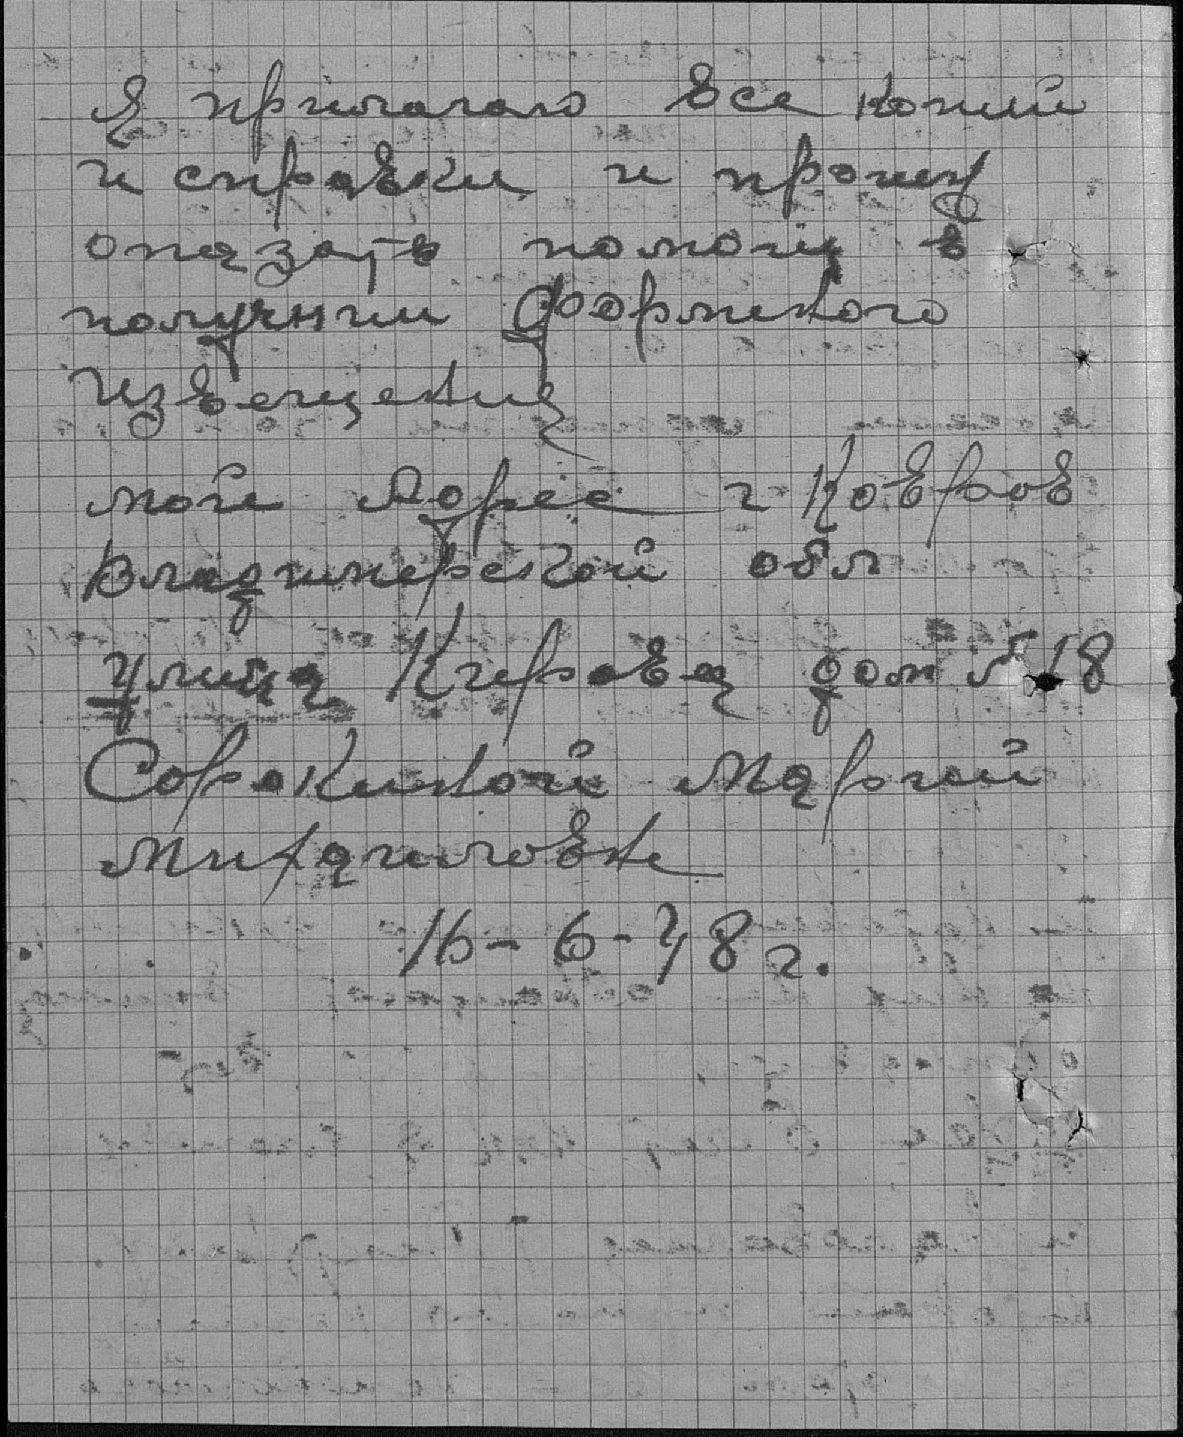 Я прилагаю все копии
и справки и прошу
оказать помощ в
получнии формиого
извещения
мой Адрес г Ковров
Владимирской обл
улица Кирова дом № 18
Сорокиной Марий
Михаиловне
16-6-48 г.